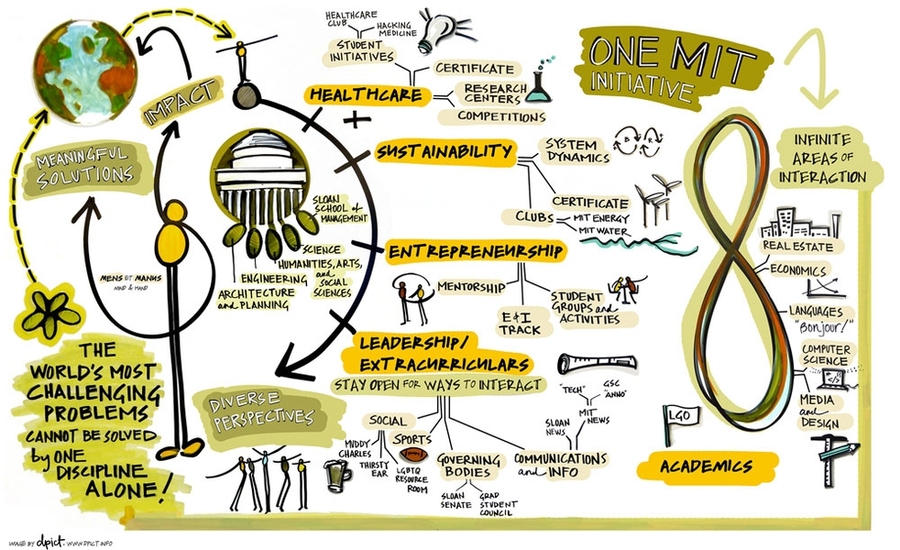 ONE MIT
INITIATIVE
HEALTHCARE
CLUB
HACKING
MEDICINE
STUDENT
INITIATIVES
HEALTHCARE
CERTIFICATE
RESEARCH
CENTERS
COMPETITIONS
IMPACT
MEANINGFUL
SOLUTIONS
MENS ET MANUS
MIND & HAND
SLOAN
SCHOOL of
MANAGEMENT
SCIENCE
HUMANITIES, ARTS,
and
SOCIAL
SCIENCES
ENGINEERING
ARCHITECTURE
and PLANNING
SUSTAINABILITY
SYSTEM
DYNAMICS
B
R
CERTIFICATE
CLUBS
MIT ENERGY
MIT WATER
ENTREPRENEURSHIP
MENTORSHIP
E&I
TRACK
STUDENT
GROUPS and
ACTIVITIES
LEADERSHIP/
EXTRACURRICULARS
STAY OPEN FOR WAYS TO INTERACT
SOCIAL
MUDDY
CHARLES
THIRSTY
EAR
SPORTS
LGBTQ
RESOURCE
ROOM
GOVERNING
BODIES
SLOAN
SENATE
GRAD
STUDENT
COUNCIL
COMMUNICATIONS
and INFO
SLOAN
NEWS
MIT
NEWS
"TECH"
GSC
"ANNO"
DIVERSE
PERSPECTIVES
THE
WORLD'S MOST
CHALLENGING
PROBLEMS
CANNOT BE SOLVED
by ONE
DISCIPLINE
ALONE!
INFINITE
AREAS OF
INTERACTION
REAL ESTATE
ECONOMICS
LANGUAGES
"Bonjour!"
COMPUTER
SCIENCE
MEDIA
and
DESIGN
LGO
ACADEMICS
IMAGE BY dpict. WWW.DPICT.INFO